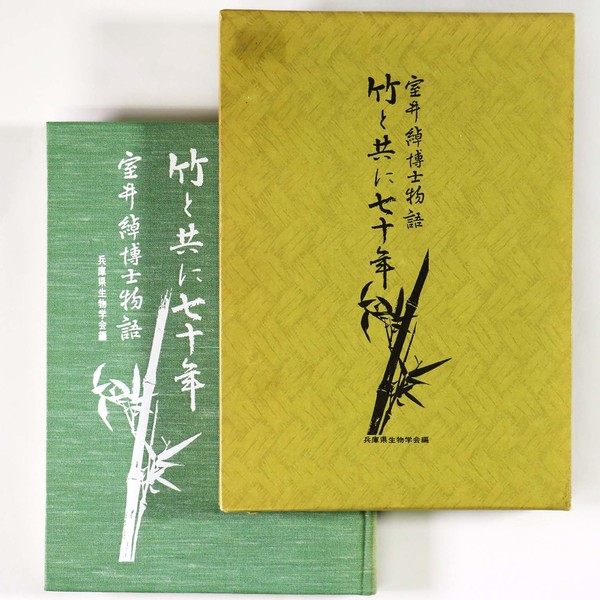 竹と共に七十年
室井綽博士物語
兵庫県生物学会編
室井綽博士物語
竹と共に七十年
兵庫県生物学会編